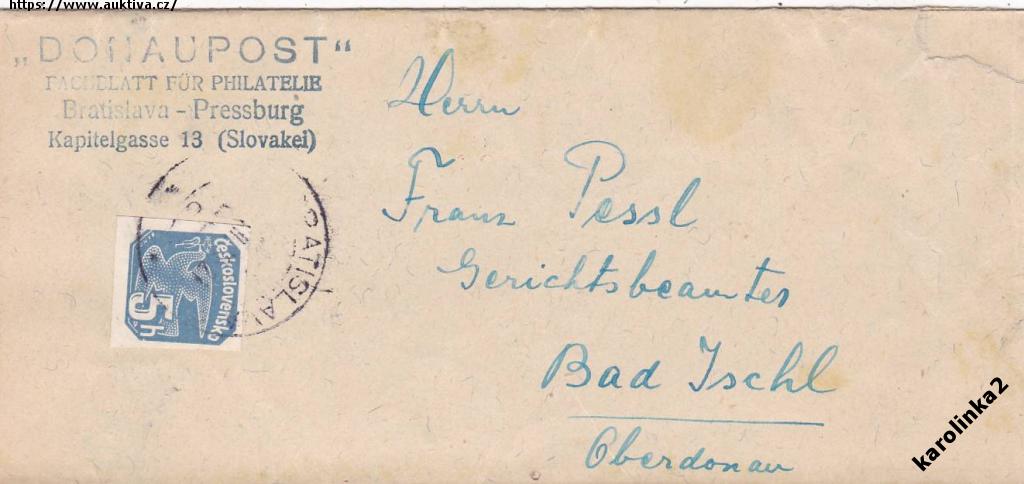 https://www.auktiva.cz/
„DONAUPOST“
FACHBLATT FÜR PHILATELIE
Bratislava - Pressburg
Kapitelgasse 13 (Slovakei)
Herrn
Franz Pessl
Gerichtsbeamter
Bad Ischl
Oberdonau
BRATISLAVA
Československo
5h
karolinka2